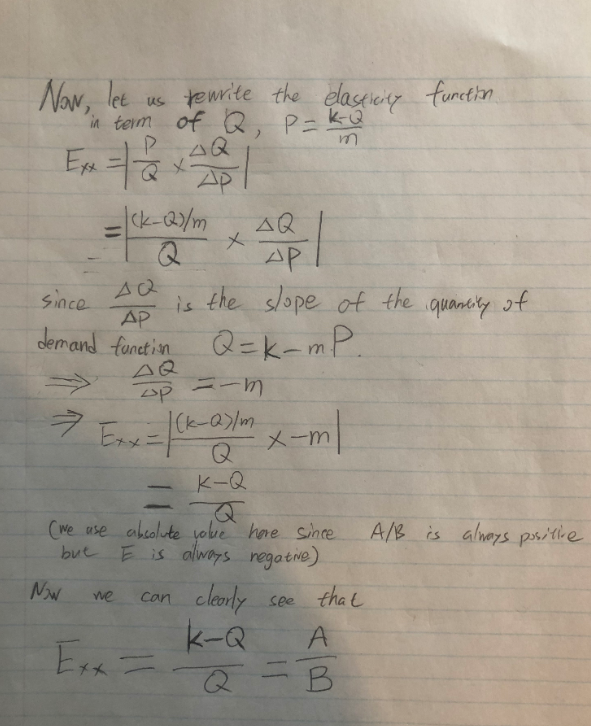 Now, let us rewrite the elasticity functin
in term of Q, P = (k-Q)/m
Exx = |P/Q × ΔQ/ΔP|
= |((k-Q)/m)/Q × ΔQ/ΔP|
since ΔQ/ΔP is the slope of the quantity of
demand function Q = k - mP.
⇒ ΔQ/ΔP = -m
⇒ Exx = |((k-Q)/m)/Q × -m|
= (k-Q)/Q
(we use absolute value here since A/B is always positive
but E is always negative)
Now we can clearly see that
Exx = (k-Q)/Q = A/B